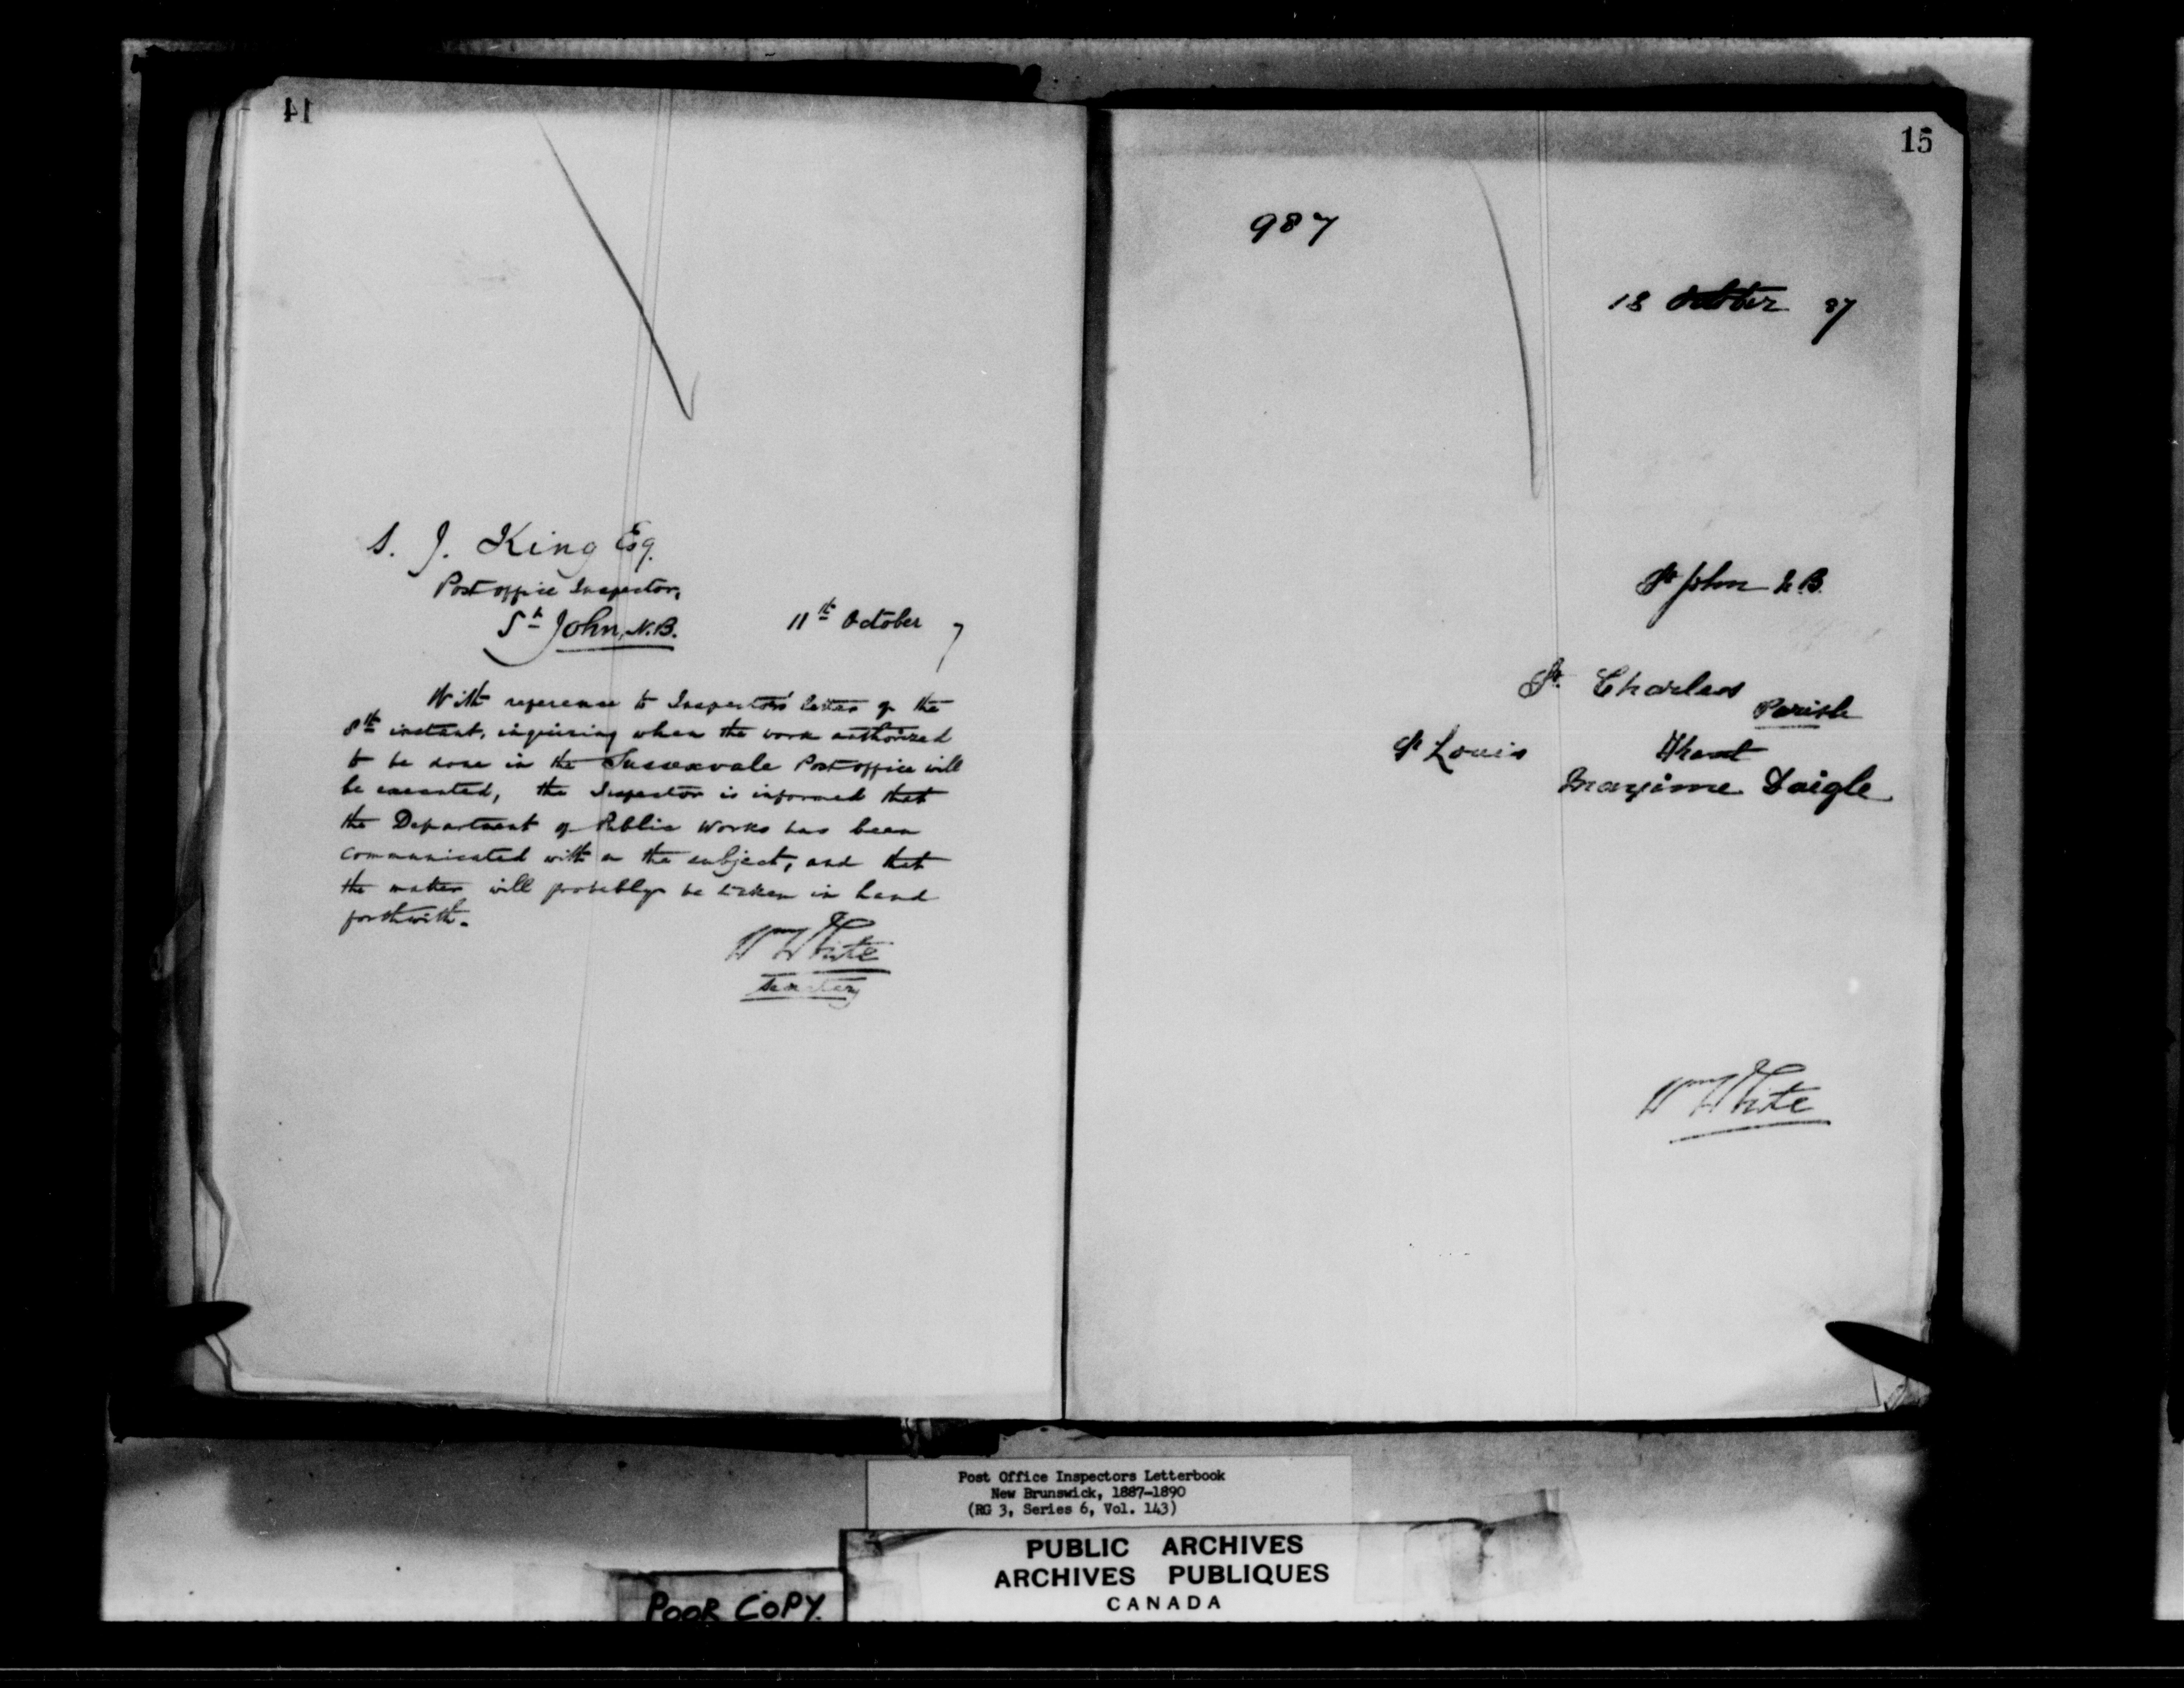 14
S. J. King Esq.
Post office Inspector,
St John, N.B.
11th October 7
With reference to Inspectors' letter of the
8th instant, inquiring when the work authorized
to be done in the Sussexvale Post office will
be executed, the Inspector is informed that
the Department of Public Works has been
communicated with on the subject, and that
the matter will probably be taken in hand
forthwith.
Wm White
Secretary
15
987
13 October 87
St John N.B.
St. Charles
Parish
St Louis Kent
Maxime Daigle
Wm White
Post Office Inspectors Letterbook
New Brunswick, 1887-1890
(RG 3, Series 6, Vol. 143)
PUBLIC ARCHIVES
ARCHIVES PUBLIQUES
CANADA
POOR COPY.